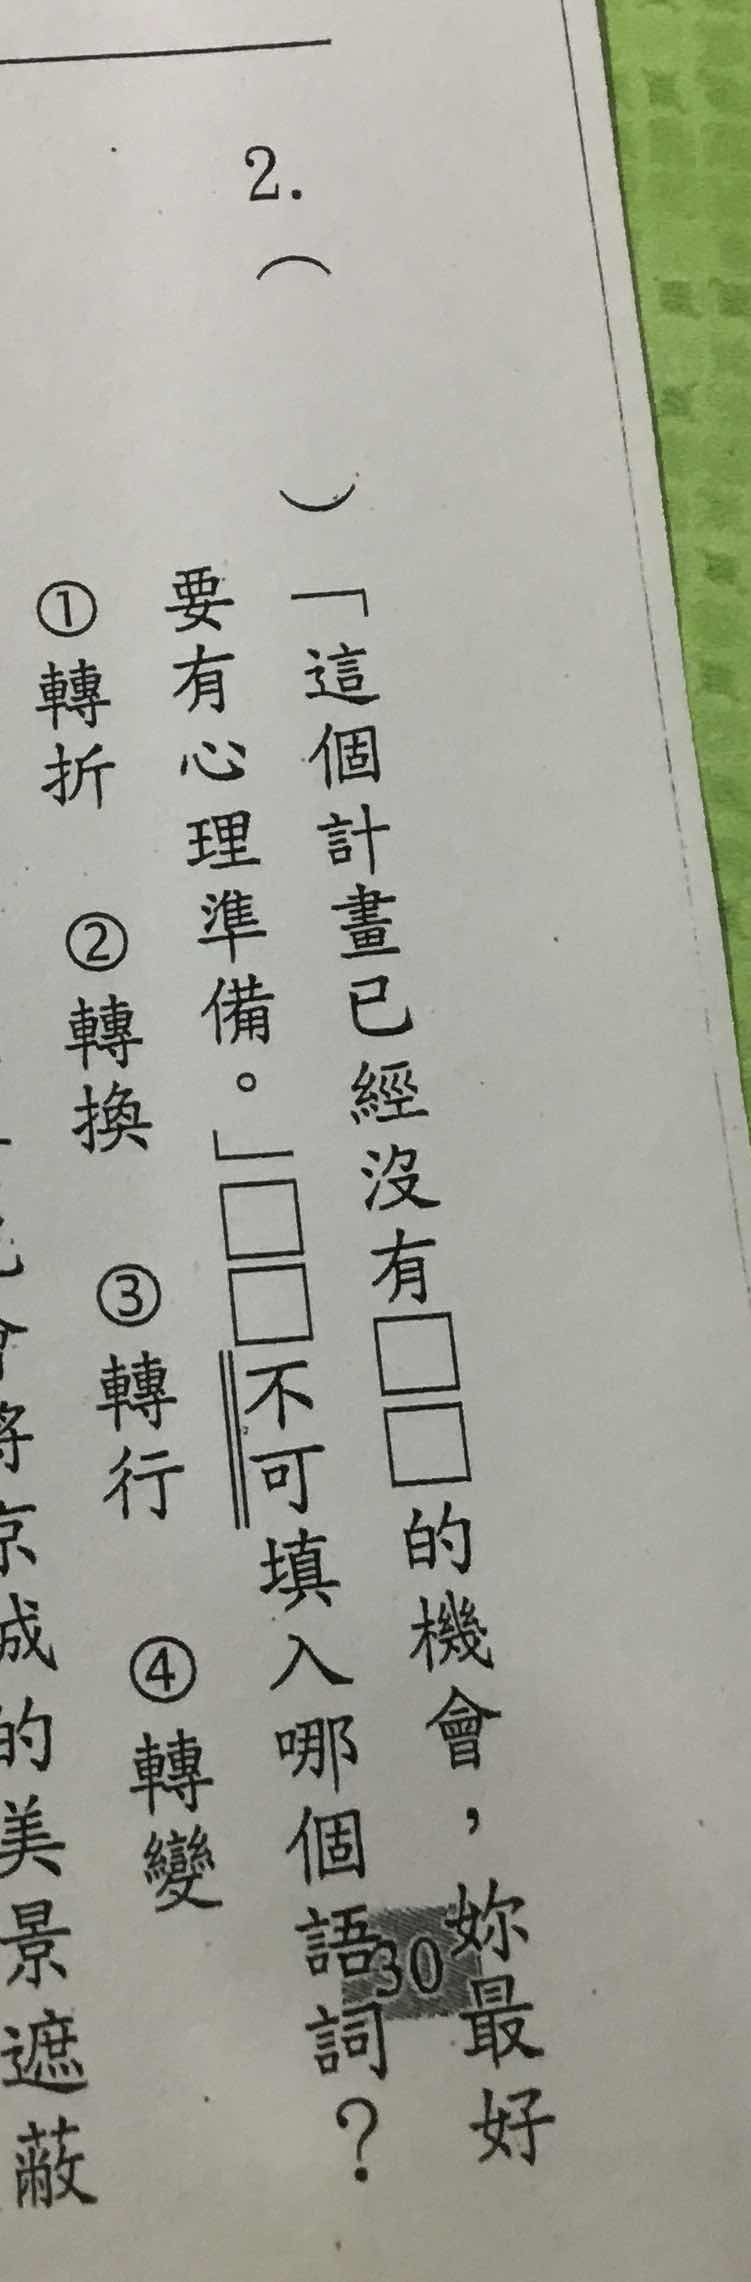 2.（　）「這個計畫已經沒有□□的機會，妳最好
要有心理準備。」□□不可填入哪個語詞？
①轉折　②轉換　③轉行　④轉變
會將京城的美景遮蔽
30